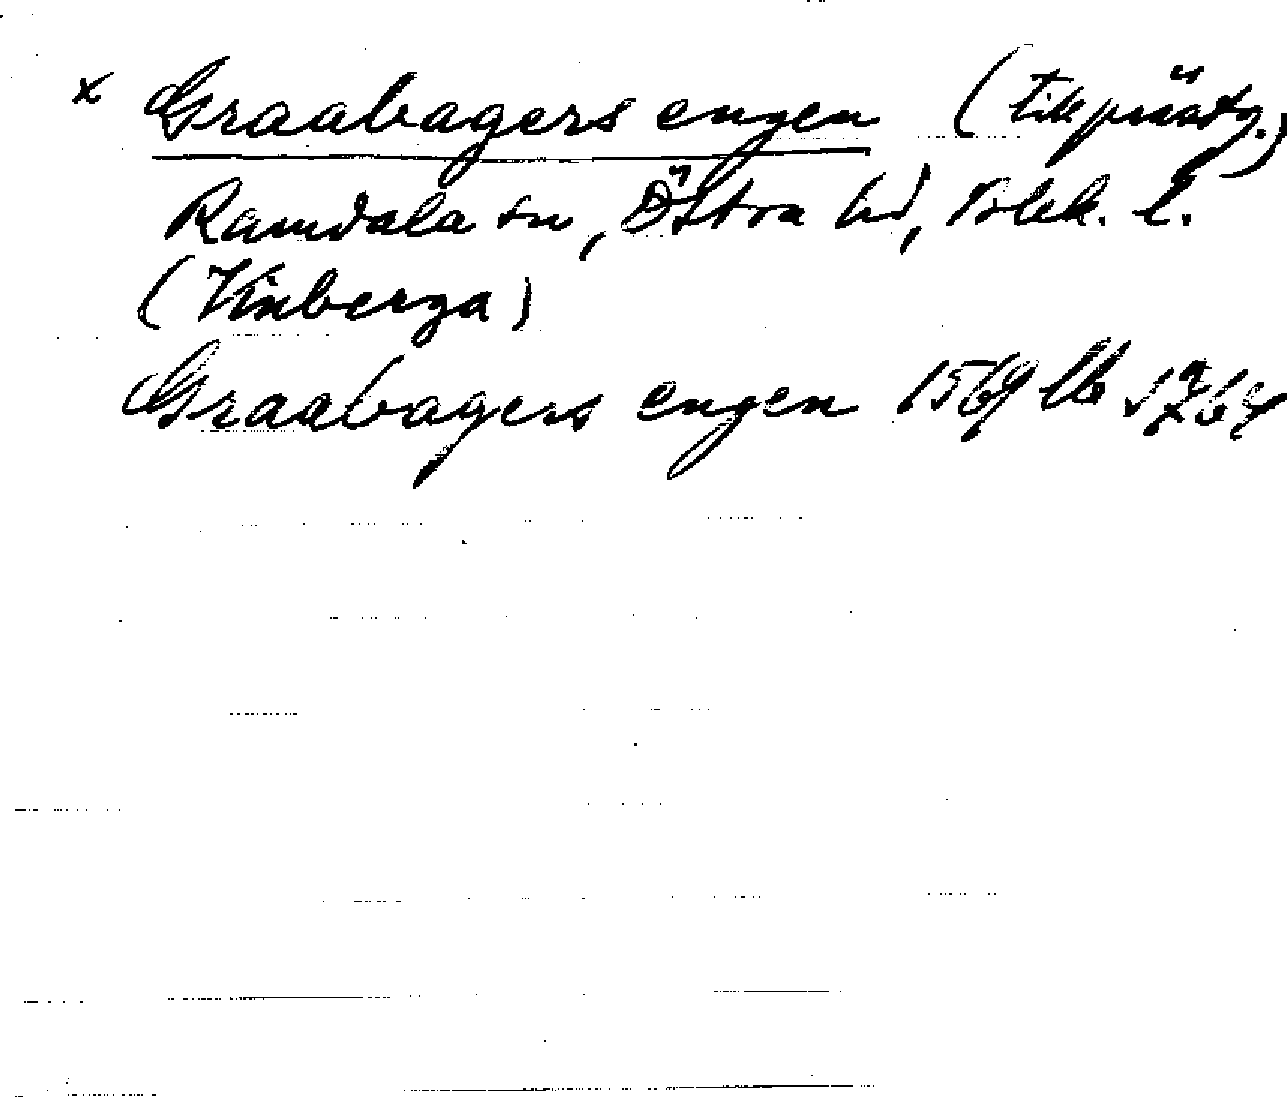 x Graabagers engen (till prästg.)
Ramdala sn, Östra hd, Blek. l.
(Vinberga)
Graabagers engen 1569 lb